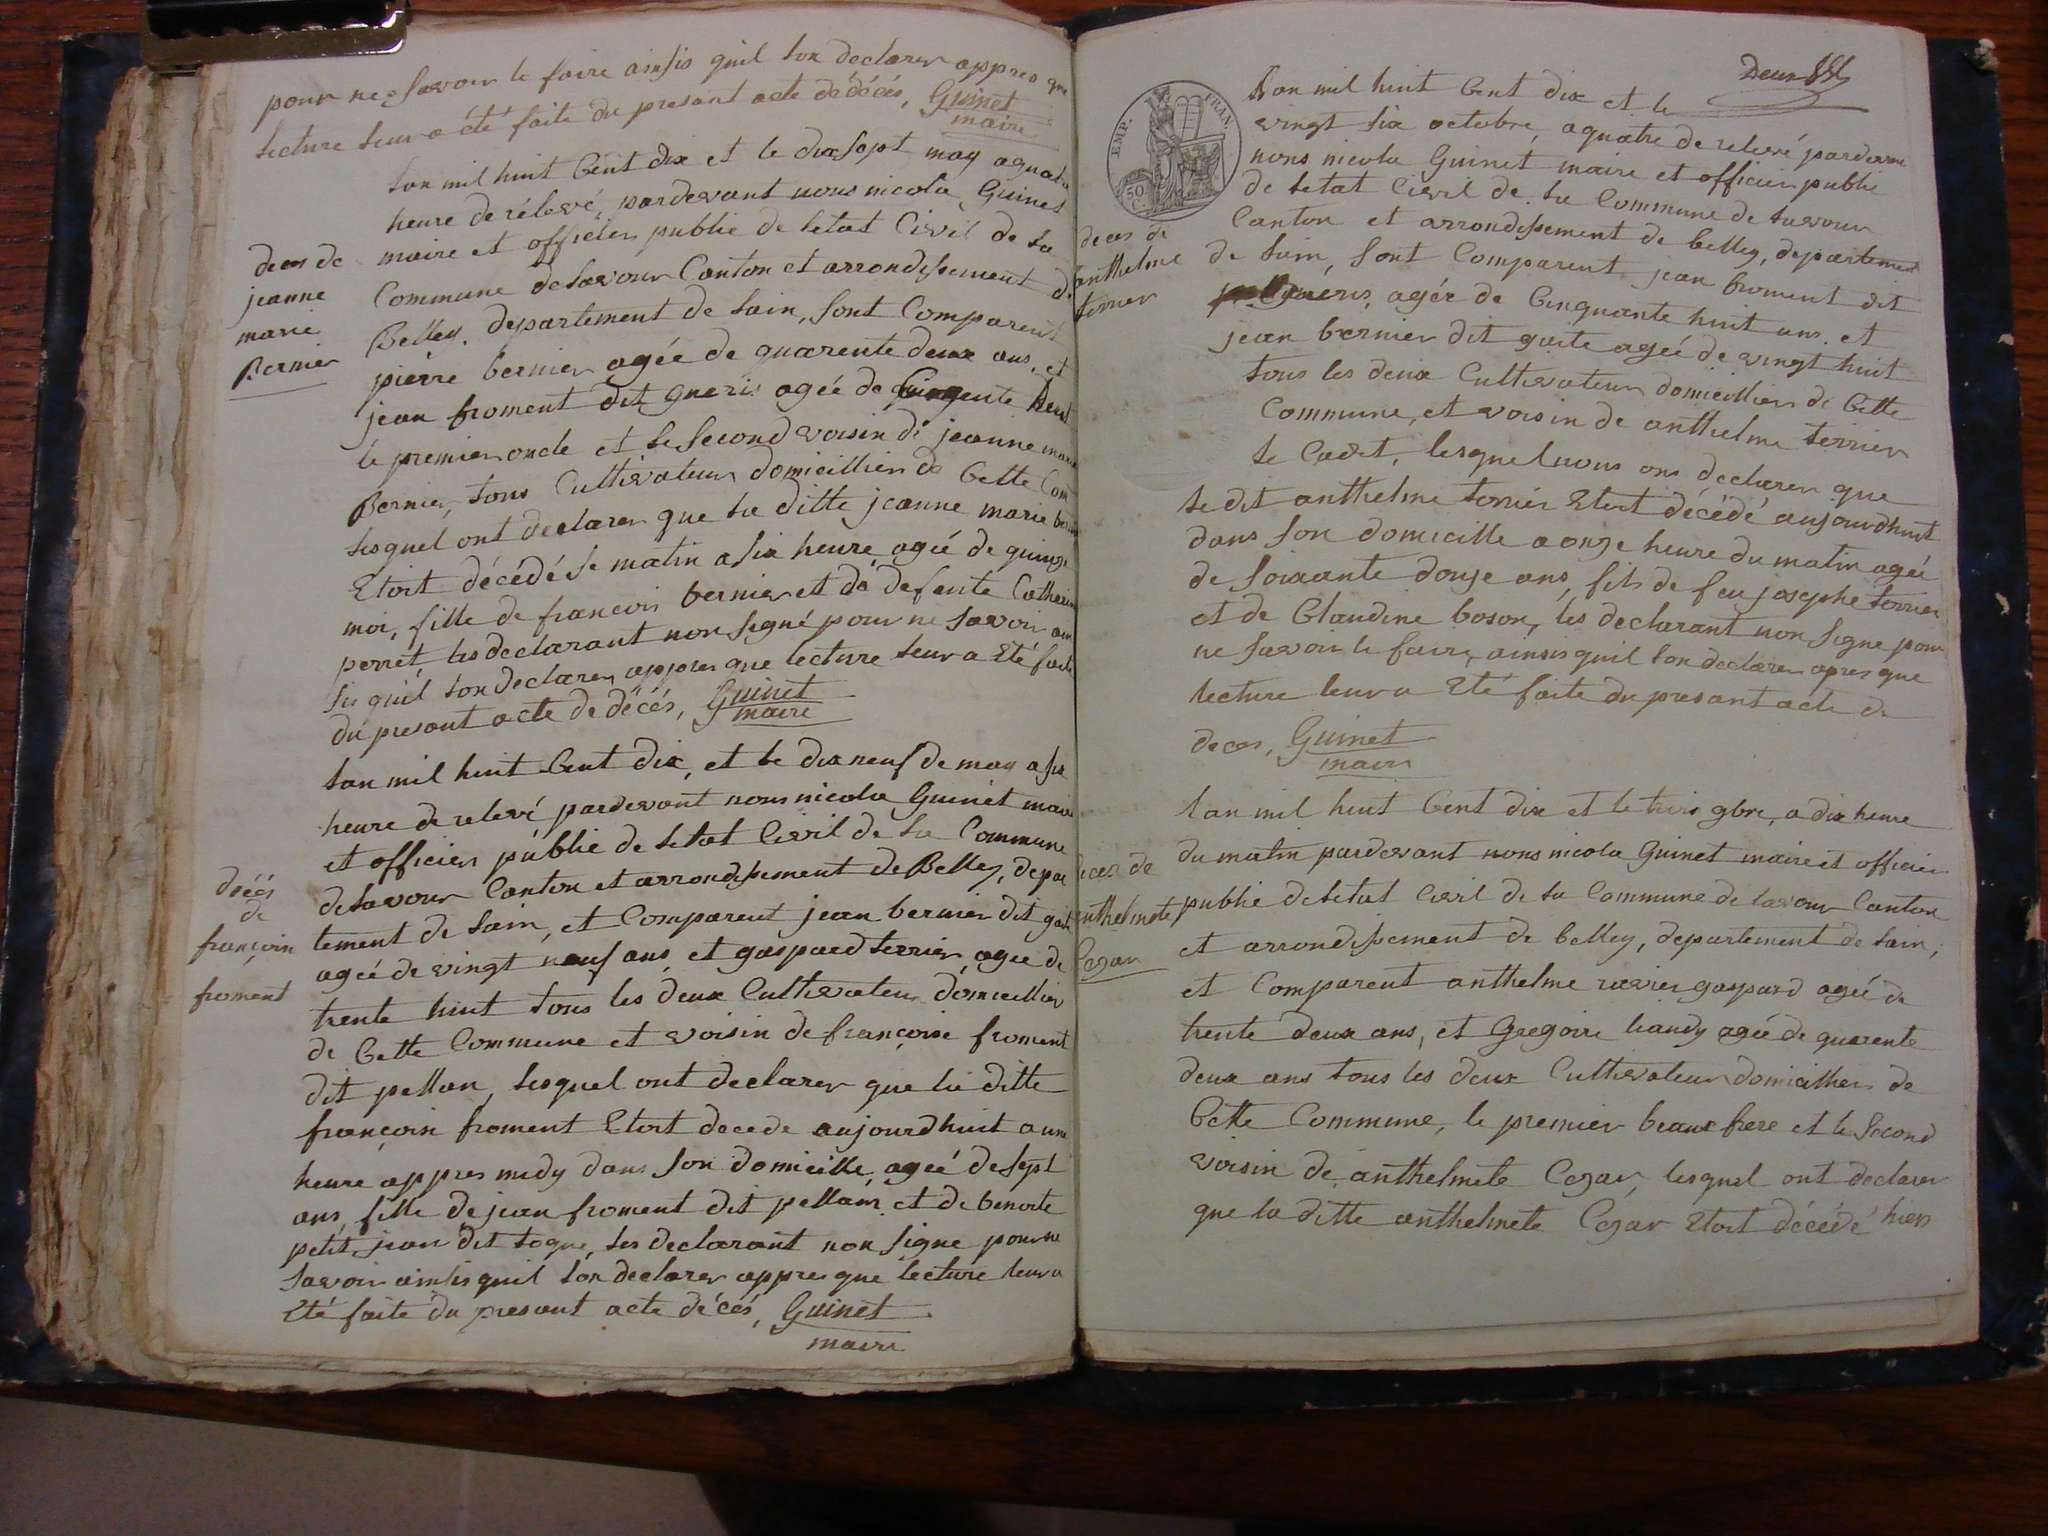 pour ne savoir le faire ainsis quil lon declarer appres que
lecture leur a été faite du presant acte de décés, Guinet
maire
lan mil huit Cent dix et le dix sept may a quatre
heure de rélevé, pardevant nous nicola Guinet
decos de
jeanne
marie
Bernier
maire et officier public de letat Civil de la
Commune de lavour Canton et arrondissement de
Belley, departement de lain, sont Comparent
pierre bernier agée de quarente deux ans, et
jean froment dit gueris agée de
le premier oncle et le second voisin de jeanne marie
Bernier, tous Cultivateur domicillier de Cette Com
lesquel ont declarer que la ditte jeanne marie
Etoit décédé le matin a six heure agée de quinze
moi, fille de francois bernier et de defente Catherine
perret, les declarant non signé pour ne savoir ain
sis quil lon declarer, appres que lecture leur a Eté faite
du presant acte de décés, Guinet
maire
lan mil huit Cent dix, et le dix neuf de may a six
heure de relevé pardevant nous nicola Guinet maire
et officier public de letat Civil de la Commune
de lavour Canton et arrondissement de Belley, depar
décés
de
francoin
froment
tement de lain, et Comparent jean bernier dit gaite
agée de vingt neuf ans, et gaspard terrier, agée de
trente huit tous les deux Cultivateur domicillier
de Cette Commune et voisin de françoise froment
dit pellan, lesquel ont declarer que la ditte
francoin froment Etoit decede aujourdhuit a une
heure appres midy dans son domicille, agée de sept
ans, fille de jean froment dit pellam et de benoite
petit jean dit toque, les declarant non signe pour ne
savoir ainsis quil lon declarer appres que lecture leur a
Eté faite du presant acte décés, Guinet
maire
Deux
EMP. FRAN.
50 C.
Lan mil huit Cent dix et le
vingt six octobre, a quatre de relevé pardevant
nous nicola Guinet maire et officier public
de letat Civil de la Commune de lavour
Canton et arrondissement de belley, departement
decos de
anthelme
terrier
de lain, sont Comparent jean froment dit
gueris, agée de Cinquante huit ans et
jean bernier dit gaite agée de vingt huit
tous les deux Cultivateur domicillier de Cette
Commune, et voisin de anthelme terrier
le Cadet, lesquel nous ons declarer que
le dit anthelme terrier Etoit décédé aujourdhuit
dans son domicille a onze heure du matin agée
de soixante douze ans, fils de feu josephe terrier
et de Claudine boson, les declarant non signe pour
ne savoir le faire, ainsis quil lon declarer apres que
lecture leur a Eté faite du presant acte de
deces, Guinet
maire
lan mil huit Cent dix et le trois 9bre, a dix heure
du matin pardevant nous nicola Guinet maire et officier
deces de
anthelmete
Cezar
public de letat Civil de la Commune de lavour Canton
et arrondissement de belley, departement de lain,
et Comparent anthelme ravier gaspard agée de
trente deux ans, et Gregoire liaudy agée de quarente
deux ans tous les deux Cultivateur domicillier de
Cette Commune, le premier beaux frere et le second
voisin de anthelmete Cezar, lesquel ont declarer
que la ditte anthelmete Cezar Etoit décédé hier